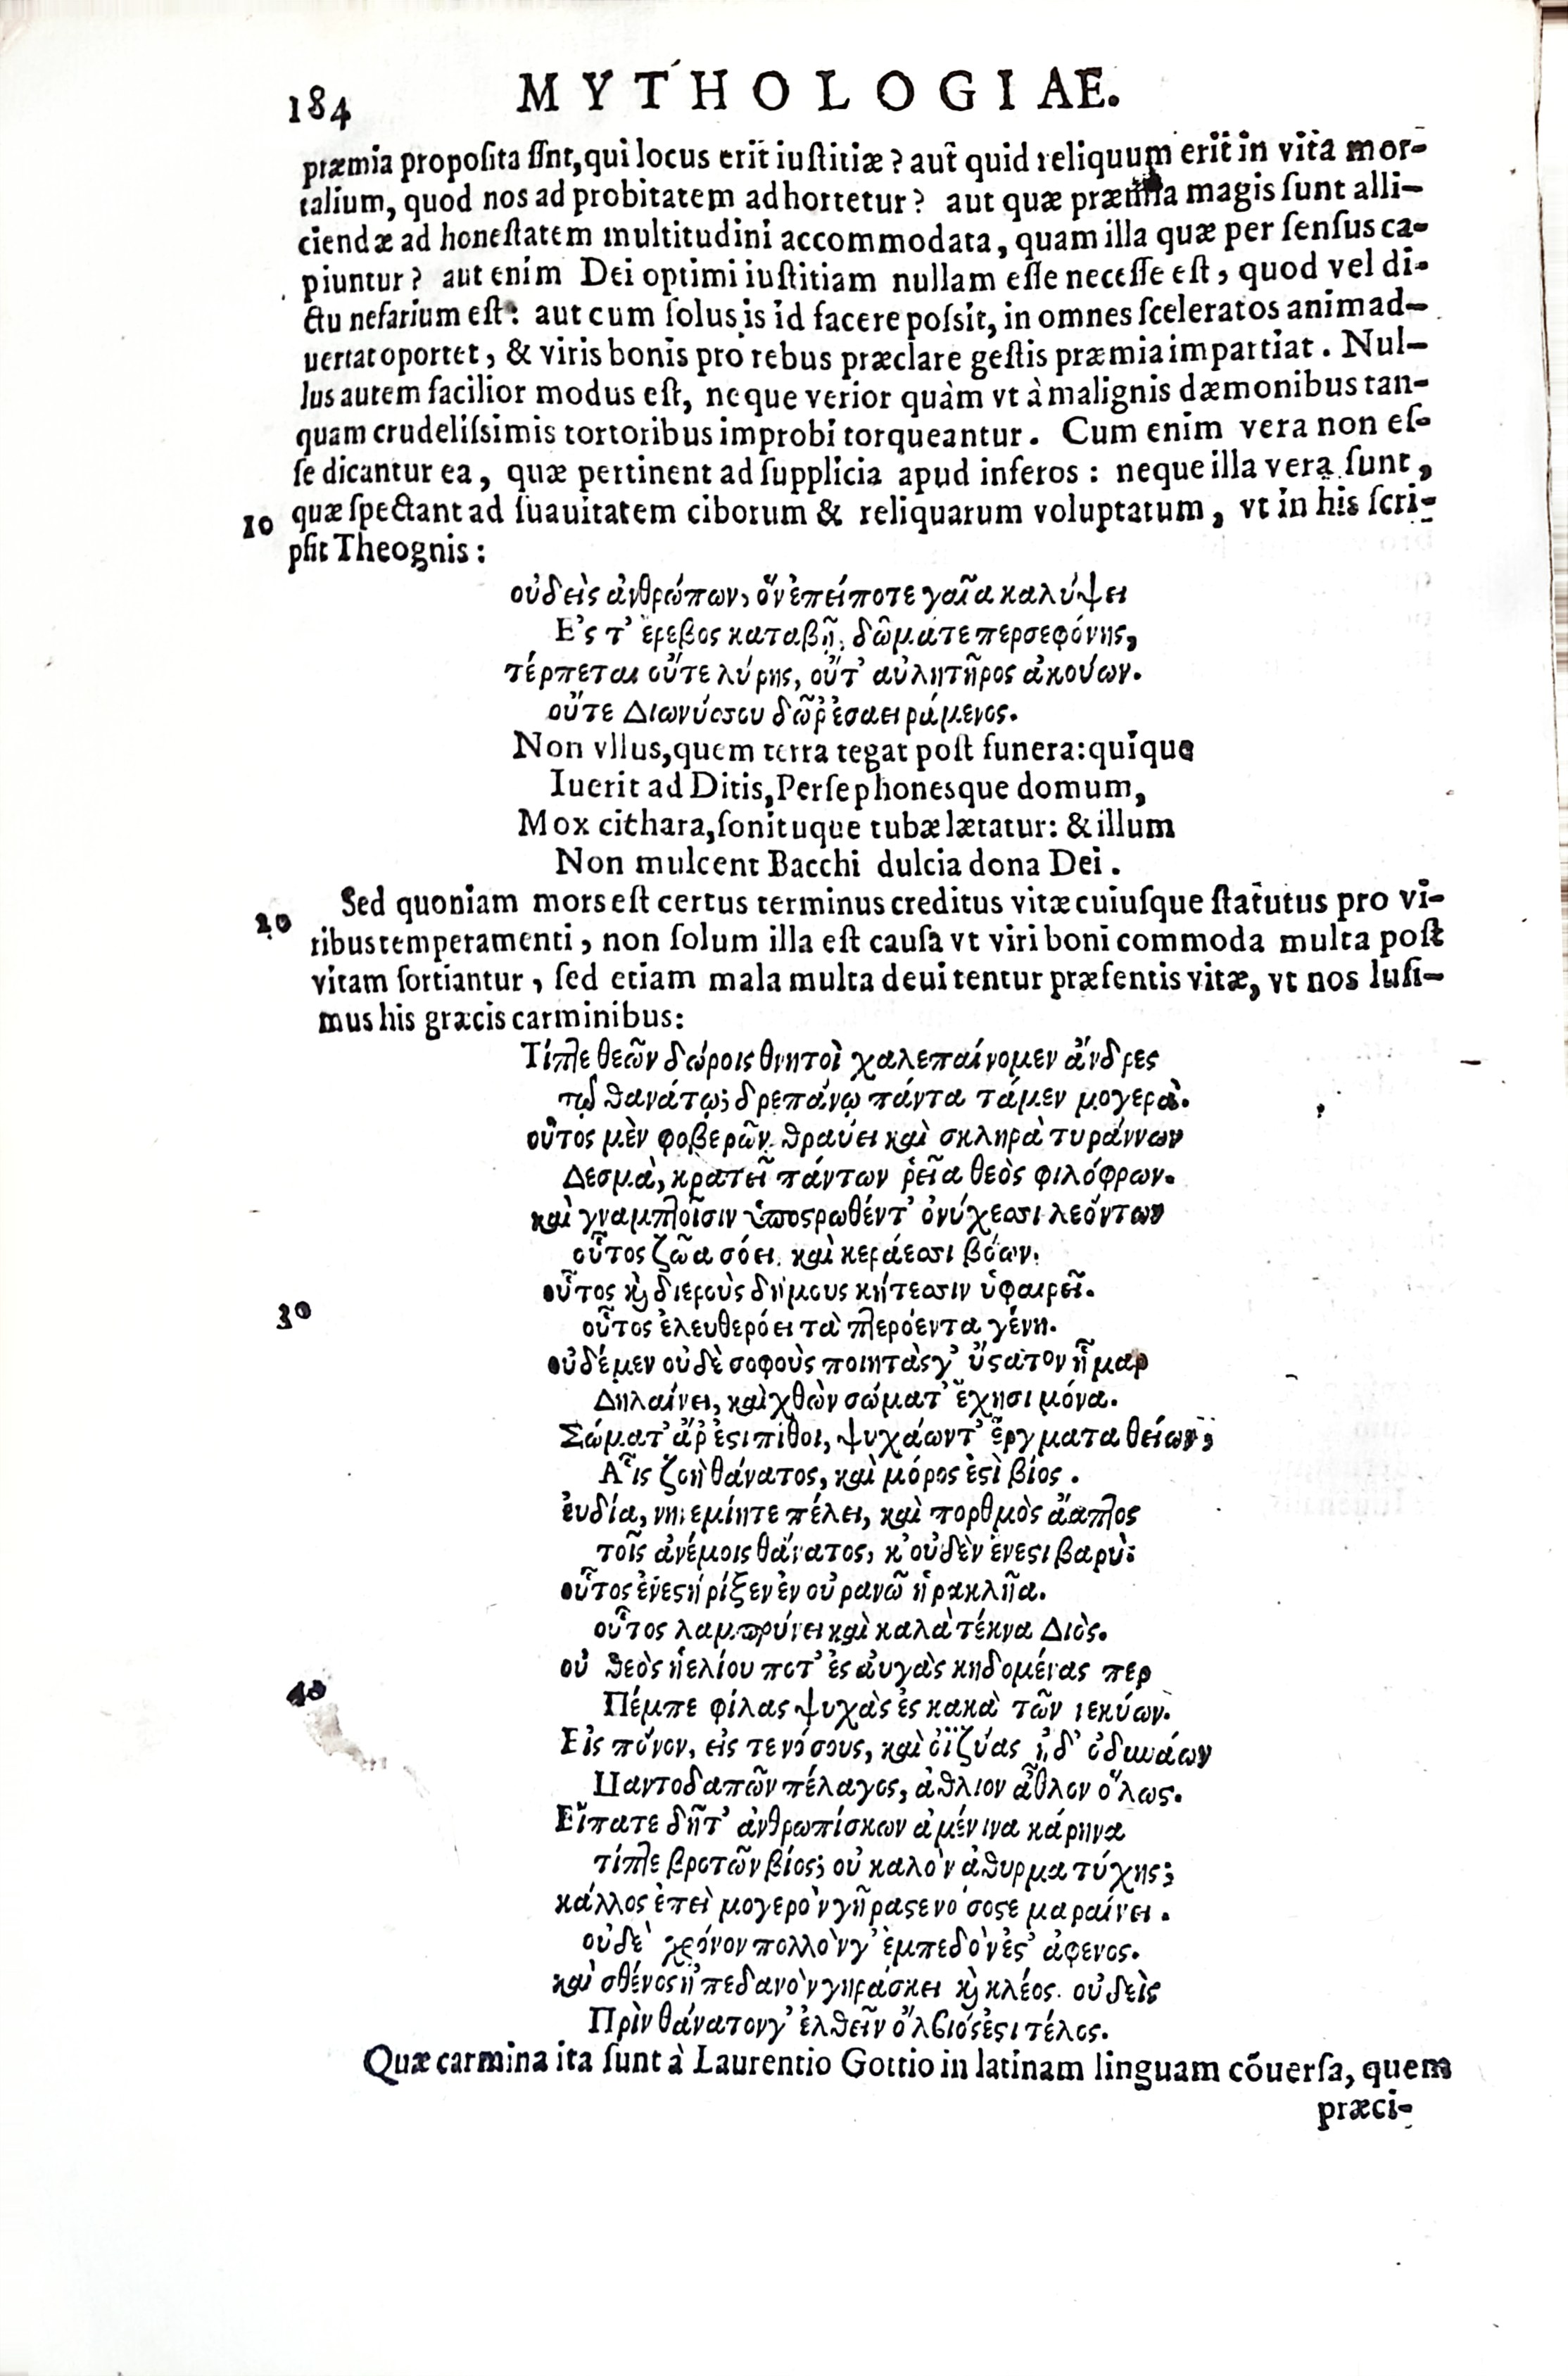 184 MYTHOLOGIAE.
præmia proposita sint, qui locus erit iustitiæ? aut quid reliquum erit in vita mor-
talium, quod nos ad probitatem adhortetur? aut quæ præmia magis sunt alli-
ciendæ ad honestatem multitudini accommodata, quam illa quæ per sensus ca-
piuntur? aut enim Dei optimi iustitiam nullam esse necesse est, quod vel di-
ctu nefarium est: aut cum solus is id facere possit, in omnes sceleratos animad-
uertat oportet, & viris bonis pro rebus præclare gestis præmia impartiat. Nul-
lus autem facilior modus est, neque verior quàm vt à malignis dæmonibus tan-
quam crudelissimis tortoribus improbi torqueantur. Cum enim vera non es-
se dicantur ea, quæ pertinent ad supplicia apud inferos: neque illa vera sunt,
10 quæ spectant ad suauitatem ciborum & reliquarum voluptatum, vt in his scri-
psit Theognis:
οὐδεὶς ἀνθρώπων, ὅν ἐπείποτε γαῖα καλύψει
Ε᾿ς τ᾿ ἔρεβος καταβῇ, δῶματε περσεφόνης,
τέρπεται οὔτε λύρης, οὔτ᾿ αὐλητῆρος ἀκούων.
οὔτε Διωνύσου δῶρ᾿ ἐσαειράμενος.
Non vllus, quem terra tegat post funera: quique
Iuerit ad Ditis, Persephonesque domum,
Mox cithara, sonituque tubæ lætatur: & illum
Non mulcent Bacchi dulcia dona Dei.
20 Sed quoniam mors est certus terminus creditus vitæ cuiusque statutus pro vi-
ribus temperamenti, non solum illa est causa vt viri boni commoda multa post
vitam sortiantur, sed etiam mala multa deuitentur præsentis vitæ, vt nos lusi-
mus his græcis carminibus:
Τίπτε θεῶν δώροις θνητοὶ χαλεπαίνομεν ἄνδρες
τῷ θανάτῳ; δρεπάνῳ πάντα τάμεν μογερὰ.
οὗτος μὲν φοβερῶν θραύει καὶ σκληρὰ τυράννων
Δεσμὰ, κρατεῖ πάντων ῥεῖα θεὸς φιλόφρων.
καὶ γναμπτοῖσιν ὑποστρωθέντ᾿ ὀνύχεσσι λεόντων
οὗτος ζῶα σόει καὶ κεράεσσι βόων.
οὗτος καὶ διεροὺς δήμους κήτεσσιν ὑφαιρεῖ.
30 οὗτος ἐλευθερόει τὰ πτερόεντα γένη.
οὐδέ μεν οὐδὲ σοφοὺς ποιητὰς γ᾿ ὕστατον ἦμαρ
Δηλαίνει, καὶ χθὼν σώματ᾿ ἔχησι μόνα.
Σώματ᾿ ἄρ᾿ ἐστι πίθοι, ψυχάων τ᾿ ἕργματα θείων;
Αἷς ζοὴ θάνατος, καὶ μόρος ἐστὶ βίος.
ἐυδία, νηνεμίητε πέλει, καὶ πορθμὸς ἄαπτος
τοῖς ἀνέμοις θάνατος, κ᾿ οὐδὲν ἔνεστι βαρὺ:
οὗτος ἐνεστήριξεν ἐν οὐρανῶ ἡρακλῆα.
οὗτος λαμπρύνει καὶ καλὰ τέκνα Διὸς.
οὐ θεὸς ἠελίου ποτ᾿ ἐς ἀυγὰς κηδομένας περ
40 Πέμπε φίλας ψυχὰς ἐς κακὰ τῶν νεκύων.
Εἰς πόνον, εἰς τε νόσους, καὶ ὀϊζύας ἠδ᾿ ὀδυνάων
Παντοδαπῶν πέλαγος, ἄθλιον ἆθλον ὅλως.
Εἴπατε δῆτ᾿ ἀνθρωπίσκων ἀμένινα κάρηνα
τίπτε βροτῶν βίος; οὐ καλὸν ἄθυρμα τύχης;
κάλλος ἐπεὶ μογερὸν γῆρας ε νόσος ε μαραίνει.
οὐδὲ χρόνον πολλὸν γ᾿ ἐμπεδὸν ἐς᾿ ἄφενος.
καὶ σθένος ἠπεδανὸν γηράσκει καὶ κλέος. οὐδεὶς
Πρὶν θάνατον γ᾿ ἐλθεῖν ὄλβιός ἐστι τέλος.
Quæ carmina ita sunt à Laurentio Gottio in latinam linguam cōuersa, quem
præci-